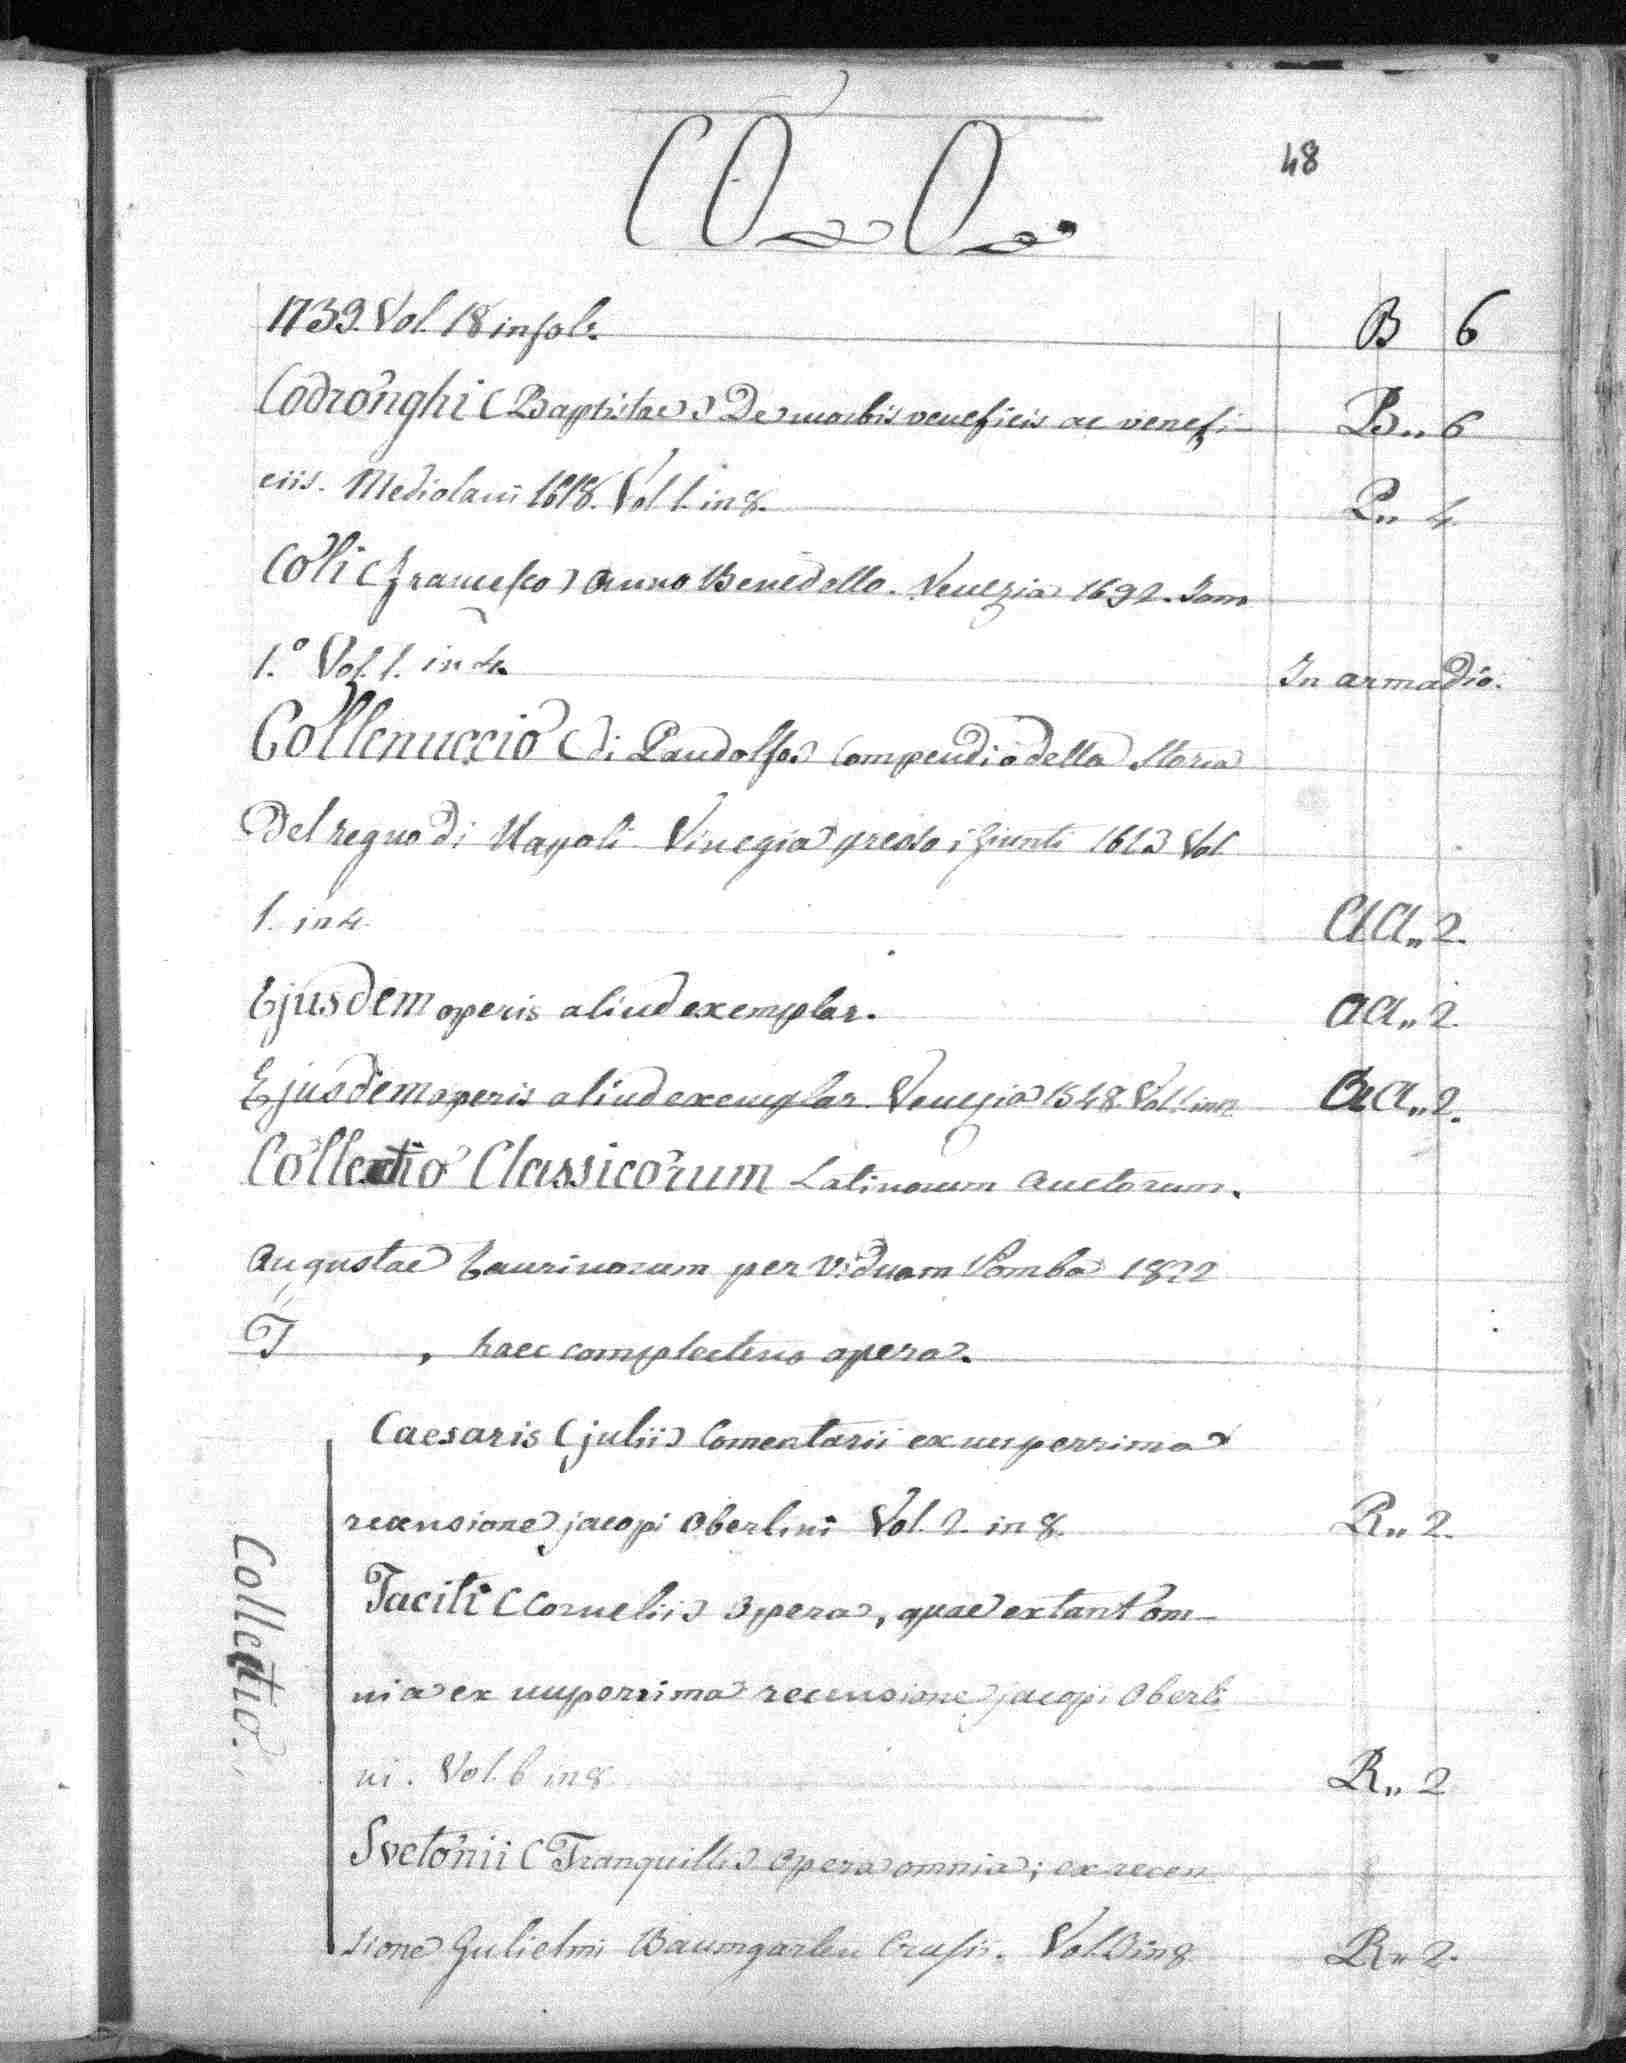 CO O
48
1739. Vol. 18 in fol. B 6
Codronghi (Baptistae) De morbis veneficis ac venefi- B„ 6
ciis. Mediolani 1618. Vol 1. in 8. P„ 4
Coli (Francesco) Anno Benedello. Venezia 1692. Tom
1.º Vol. 1. in 4. In armadio.
Collenuccio (di Pandolfo) Compendio della Storia
del regno di Napoli Vinegia presso i Giunti 1613 Vol
1. in 4. AA„ 2.
Ejusdem operis aliud exemplar. AA„ 2.
Ejusdem operis aliud exemplar. Venezia 1548. Vol. 1 in AA„ 2.
Collectio Classicorum Latinorum Auctorum.
Augustae Taurinorum per Viduam Pomba 1822
T , haec complectens opera.
Caesaris (julii) Comentarii ex nuperrima
recensione jacopi Oberlini Vol. 2. in 8. R„ 2.
Taciti (Cornelii) Opera, quae extant om-
nia ex nuperrima recensione jacopi Oberli
ni. Vol. 6 in 8. R„ 2
Svetonii (Tranquilli) Opera omnia; ex recen
sione Gulielmi Baumgarten Crusii. Vol. 3 in 8 R„ 2.
Collectio.